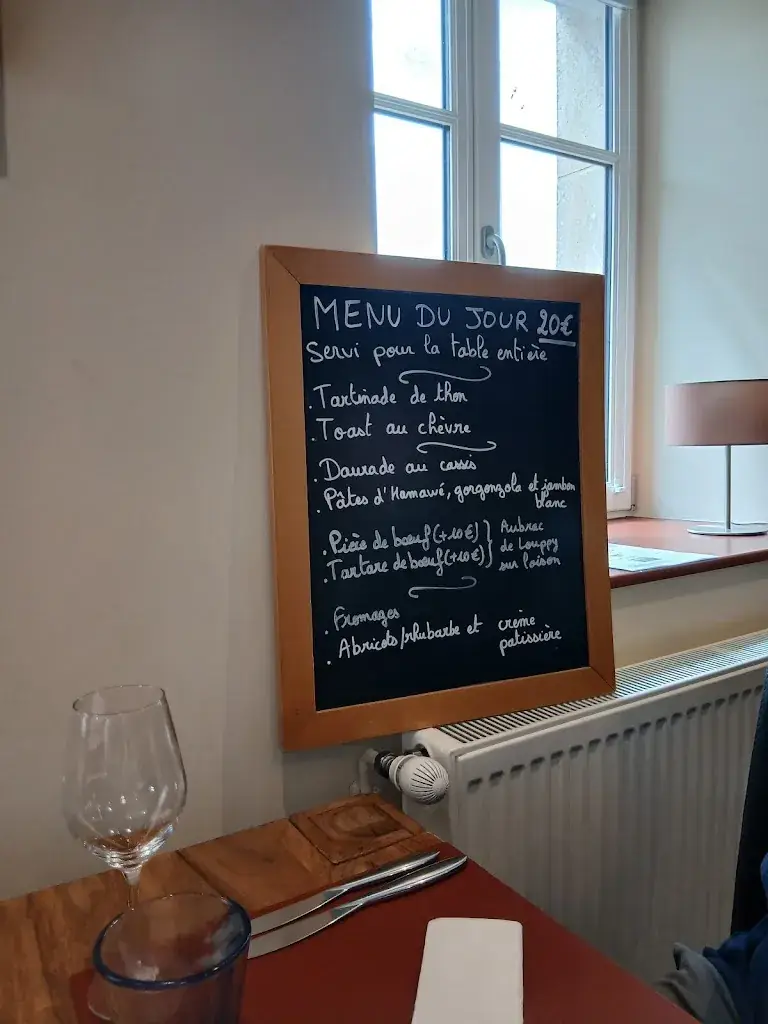 MENU DU JOUR 20€
Servi pour la table entière
. Tartinade de thon
. Toast au chèvre
. Daurade au cassis
. Pâtes d'Hamawé, gorgonzola et jambon
blanc
. Pièce de bœuf (+10€) } Aubrac
. Tartare de bœuf (+10€) } de Louppy
sur loison
. Fromages
. Abricots/rhubarbe et crème
patissière